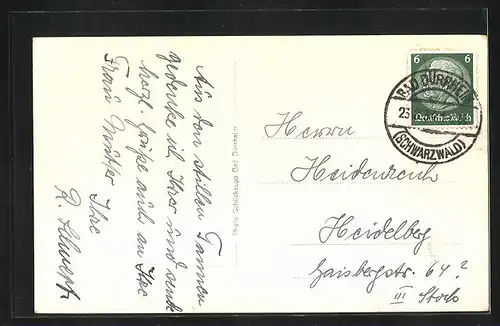 Aus den stillen Tannen
gedenke ich Ihrer und sende
herzl. Grüße auch an Ihre
Frau Mutter Ihre
R.
Photo Schlickeupp Bad Dürrheim
6 6
Deutsches Reich
BAD DÜRRHEIM
23
(SCHWARZWALD)
Herrn
Heidenreich
Heidelberg
Gaisbergstr. 64?
III Stock